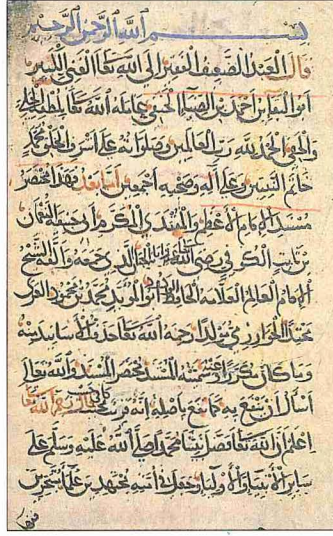 بسم الله الرحمن الرحيم
قال العبد الضعيف الفقير الى الله تعالى الغني الكبير
ابو البقا بن احمد بن الضيا الحنفي عامله الله تعالى بلطفه الجلي
والخفي الحمد لله رب العالمين وصلواته على اشرف الخلق محمد
خاتم النبيين وعلى آله وصحبه اجمعين اما بعد فهذا مختصر
مسند الامام الاعظم والمقتدى الاكرم ابي حنيفة النعمان
بن ثابت الكوفي رضي الله تعالى عنه الذي رحمه والفه الشيخ
الامام العالم العلامة الحافظ ابو المويد محمد بن محمود العربي
محتدا الخوارزمي مولدا رحمه الله تعالى حذفت الاسانيد منه
وما كان مكررا عنه سميته المستند مختصر المسند والله تعالى
اسأل ان ينفع به كما نفع باصله انه قريب مجيب
اعلم ان الله تعالى فضل نبينا محمدا صلى الله عليه وسلم على
ساير الانبيا والاوليا وجعل في امته مجتهدين علما متبحرين